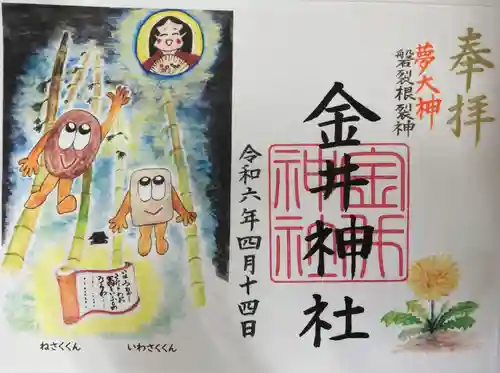 奉拝
夢大神
磐裂根裂神
金井神社
金井
神社
令和六年四月十四日
ねさくくん
いわさくくん